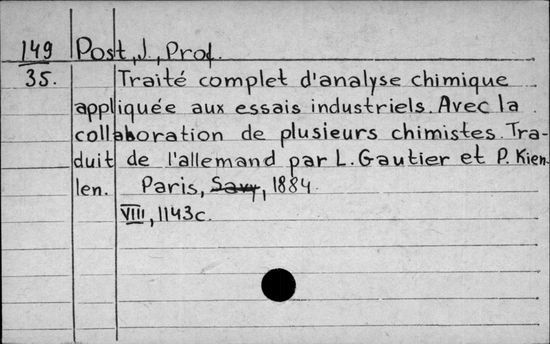 149 Post, J., Prof.
35. Traité complet d'analyse chimique
appliquée aux essais industriels. Avec la
collaboration de plusieurs chimistes. Tra-
duit de l'allemand par L. Gautier et P. Kien-
len. Paris, Savy, 1884.
VIII, 1143c.